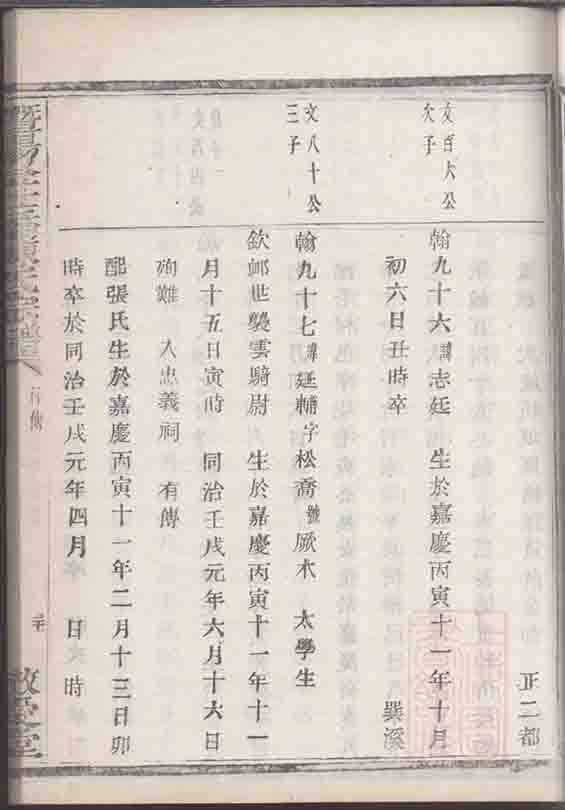 正二都
文百六公
次子
翰九十六諱志廷 生於嘉慶丙寅十一年十月
初六日丑時卒 巽溪
文八十公
三子
翰九十七諱廷輔字松喬號厥木 太學生
欽䘏世襲雲騎尉 生於嘉慶丙寅十一年十一
月十五日寅時 同治壬戌元年六月十六日
殉難 入忠義祠 有傳
配張氏生於嘉慶丙寅十一年二月十三日卯
時卒於同治壬戌元年四月 日 時
行傳